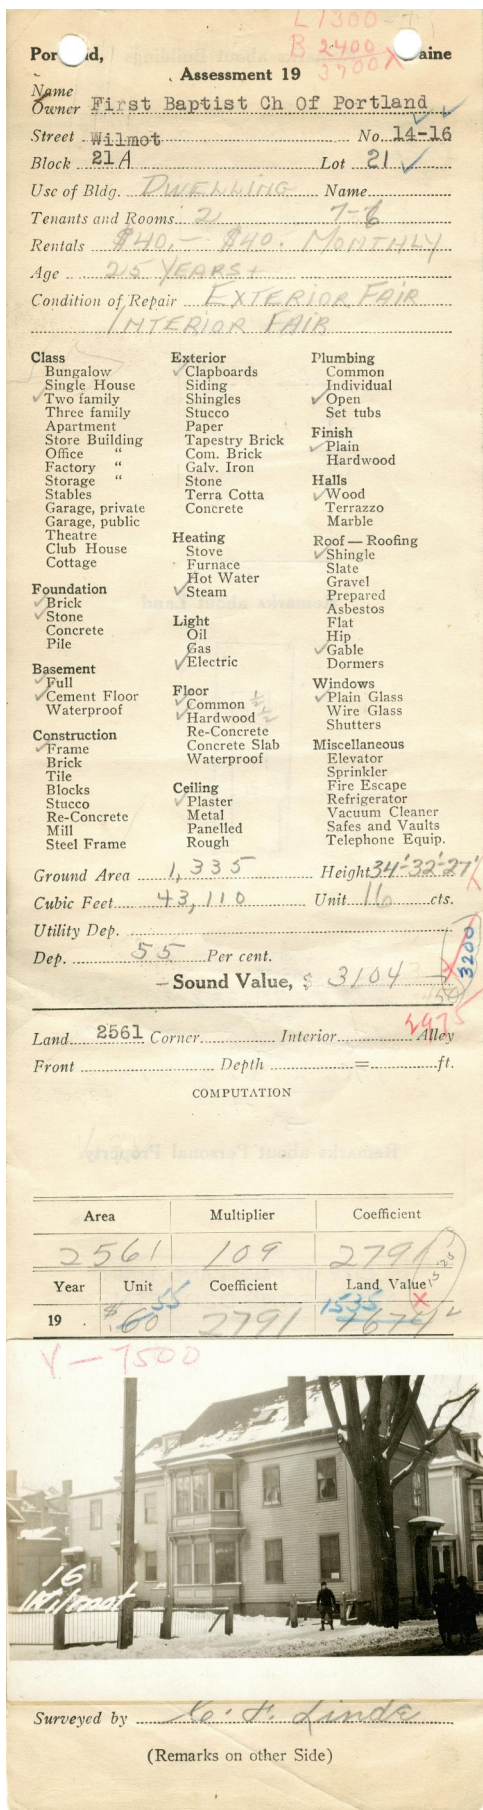 L 1300
B 2400
3700 X
Portland, Maine
Assessment 19
Name
Owner First Baptist Ch Of Portland
Street Wilmot No. 14-16
Block 21A Lot 21
Use of Bldg. DWELLING Name
Tenants and Rooms 2 7-6
Rentals $40.- $40. MONTHLY
Age 25 YEARS+
Condition of Repair EXTERIOR FAIR
INTERIOR FAIR
Class
Bungalow
Single House
✓ Two family
Three family
Apartment
Store Building
Office "
Factory "
Storage "
Stables
Garage, private
Garage, public
Theatre
Club House
Cottage
Foundation
✓ Brick
✓ Stone
Concrete
Pile
Basement
✓ Full
✓ Cement Floor
Waterproof
Construction
✓ Frame
Brick
Tile
Blocks
Stucco
Re-Concrete
Mill
Steel Frame
Exterior
✓ Clapboards
Siding
Shingles
Stucco
Paper
Tapestry Brick
Com. Brick
Galv. Iron
Stone
Terra Cotta
Concrete
Heating
Stove
Furnace
Hot Water
✓ Steam
Light
Oil
Gas
✓ Electric
Floor
✓ Common ½
✓ Hardwood ½
Re-Concrete
Concrete Slab
Waterproof
Ceiling
✓ Plaster
Metal
Panelled
Rough
Plumbing
Common
Individual
✓ Open
Set tubs
Finish
✓ Plain
Hardwood
Halls
✓ Wood
Terrazzo
Marble
Roof — Roofing
✓ Shingle
Slate
Gravel
Prepared
Asbestos
Flat
Hip
✓ Gable
Dormers
Windows
✓ Plain Glass
Wire Glass
Shutters
Miscellaneous
Elevator
Sprinkler
Fire Escape
Refrigerator
Vacuum Cleaner
Safes and Vaults
Telephone Equip.
Ground Area 1,335 Height 34'-32'-27'
Cubic Feet 43,110 Unit 16 cts.
Utility Dep.
Dep. 55 Per cent.
Sound Value, $ 3104
3200
2975
Land 2561 Corner Interior Alley
Front Depth = ft.
COMPUTATION
Remarks about Personal Property
Area Multiplier Coefficient
2561 109 2791
Year Unit Coefficient Land Value
19 $60 55 2791 1535 1674
1525
V-7500
16
Wilmot
Surveyed by C. F. Linde
(Remarks on other Side)